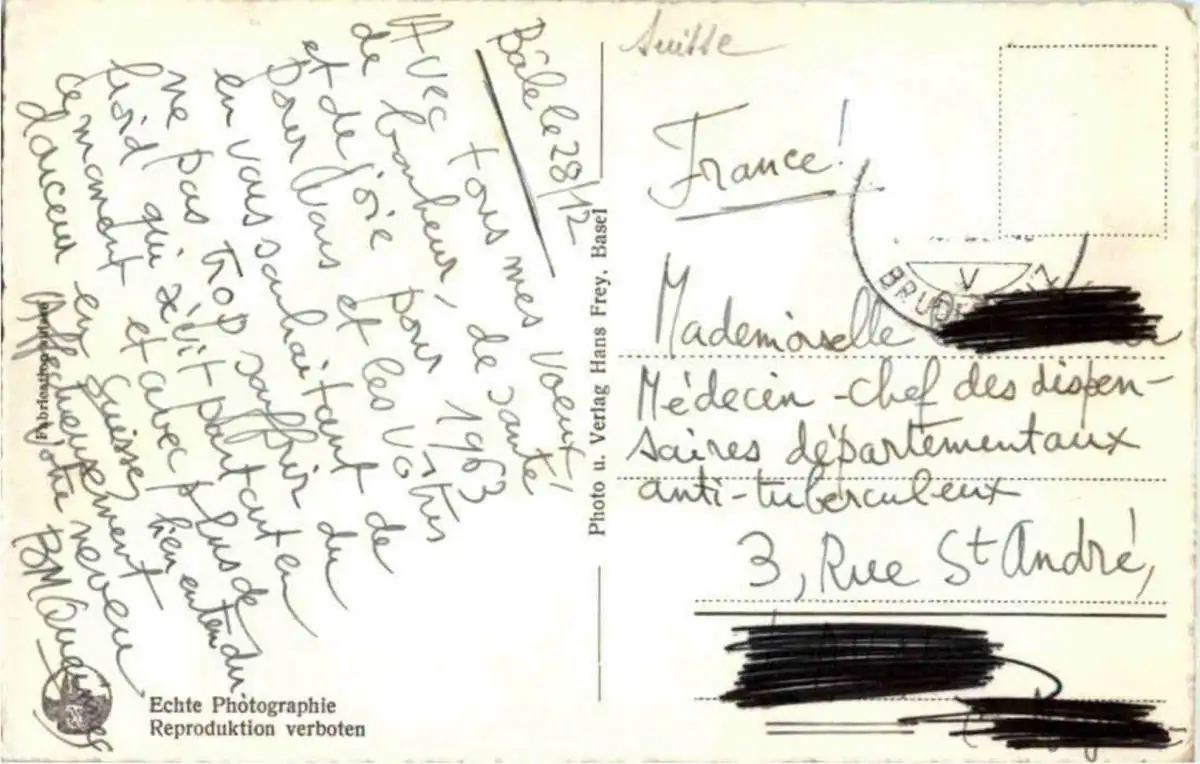 Bâle le 28/12
Avec tous mes voeux
de bonheur, de santé
et de joie pour 1963
pour Vous et les Vôtres
en vous souhaitant de
ne pas trop souffrir du
froid qui sévit partout en
ce moment et avec plus de
douceur en Suisse, bien entendu
Affectueusement
Votre neveu
Fabrication
Echte Photographie
Reproduktion verboten
Photo u. Verlag Hans Frey, Basel
Suisse
France!
V
Mademoiselle
Médecin-chef des dispen-
saires départementaux
anti-tuberculeux
3, Rue St André,